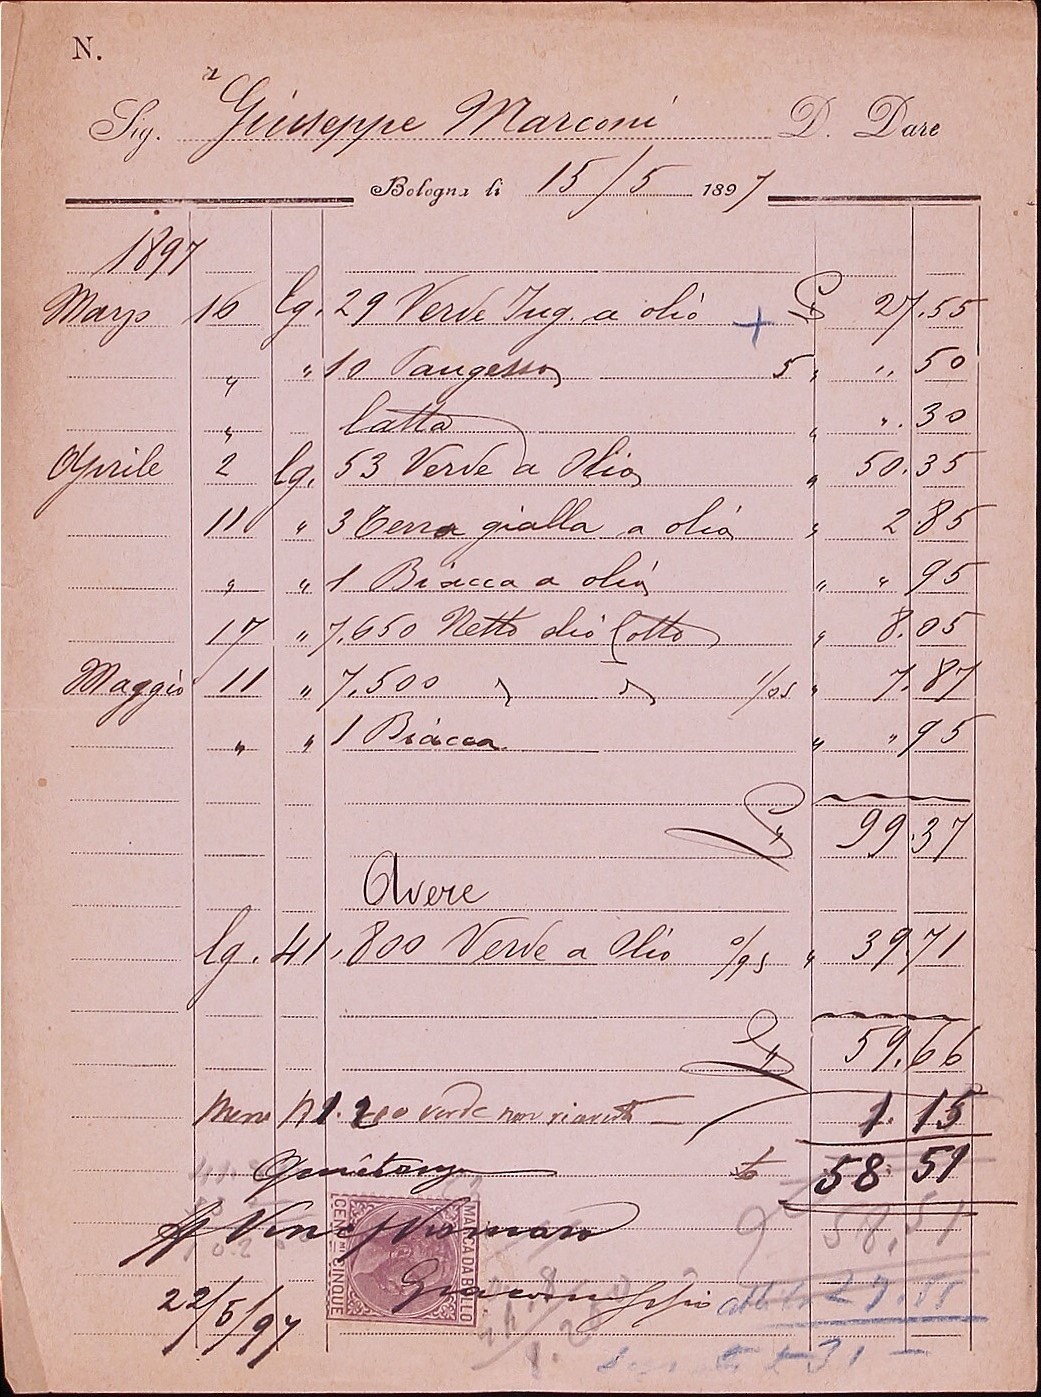 N.
Sig. Giuseppe Marconi D. Dare
Bologna li 15/5 1897
1897
Marzo 16 Cg. 29 Verde Ing. a olió £ 27.55
" " 10 5 " ". 50
" Latta " ". 30
Aprile 2 Cg. 53 Verde a Olio " 50.35
11 " 3 Terra gialla a olió " 2.85
" " 1 Biacca a olió " " 95
17 " 7,650 Netto olió Cotto " 8.05
Maggio 11 " 7,500 " " 1/05 " 7.87
" " 1 Biacca " " 95
£ 99.37
Avere
Cg. 41,800 Verde a Olio 0/95 " 39.71
£ 59.66
Meno verde non ricevuto 1.15
Quietanza £ 58 51
58,51
MARCA DA BOLLO
CENT.MI CINQUE
22/5/97
27.55
31